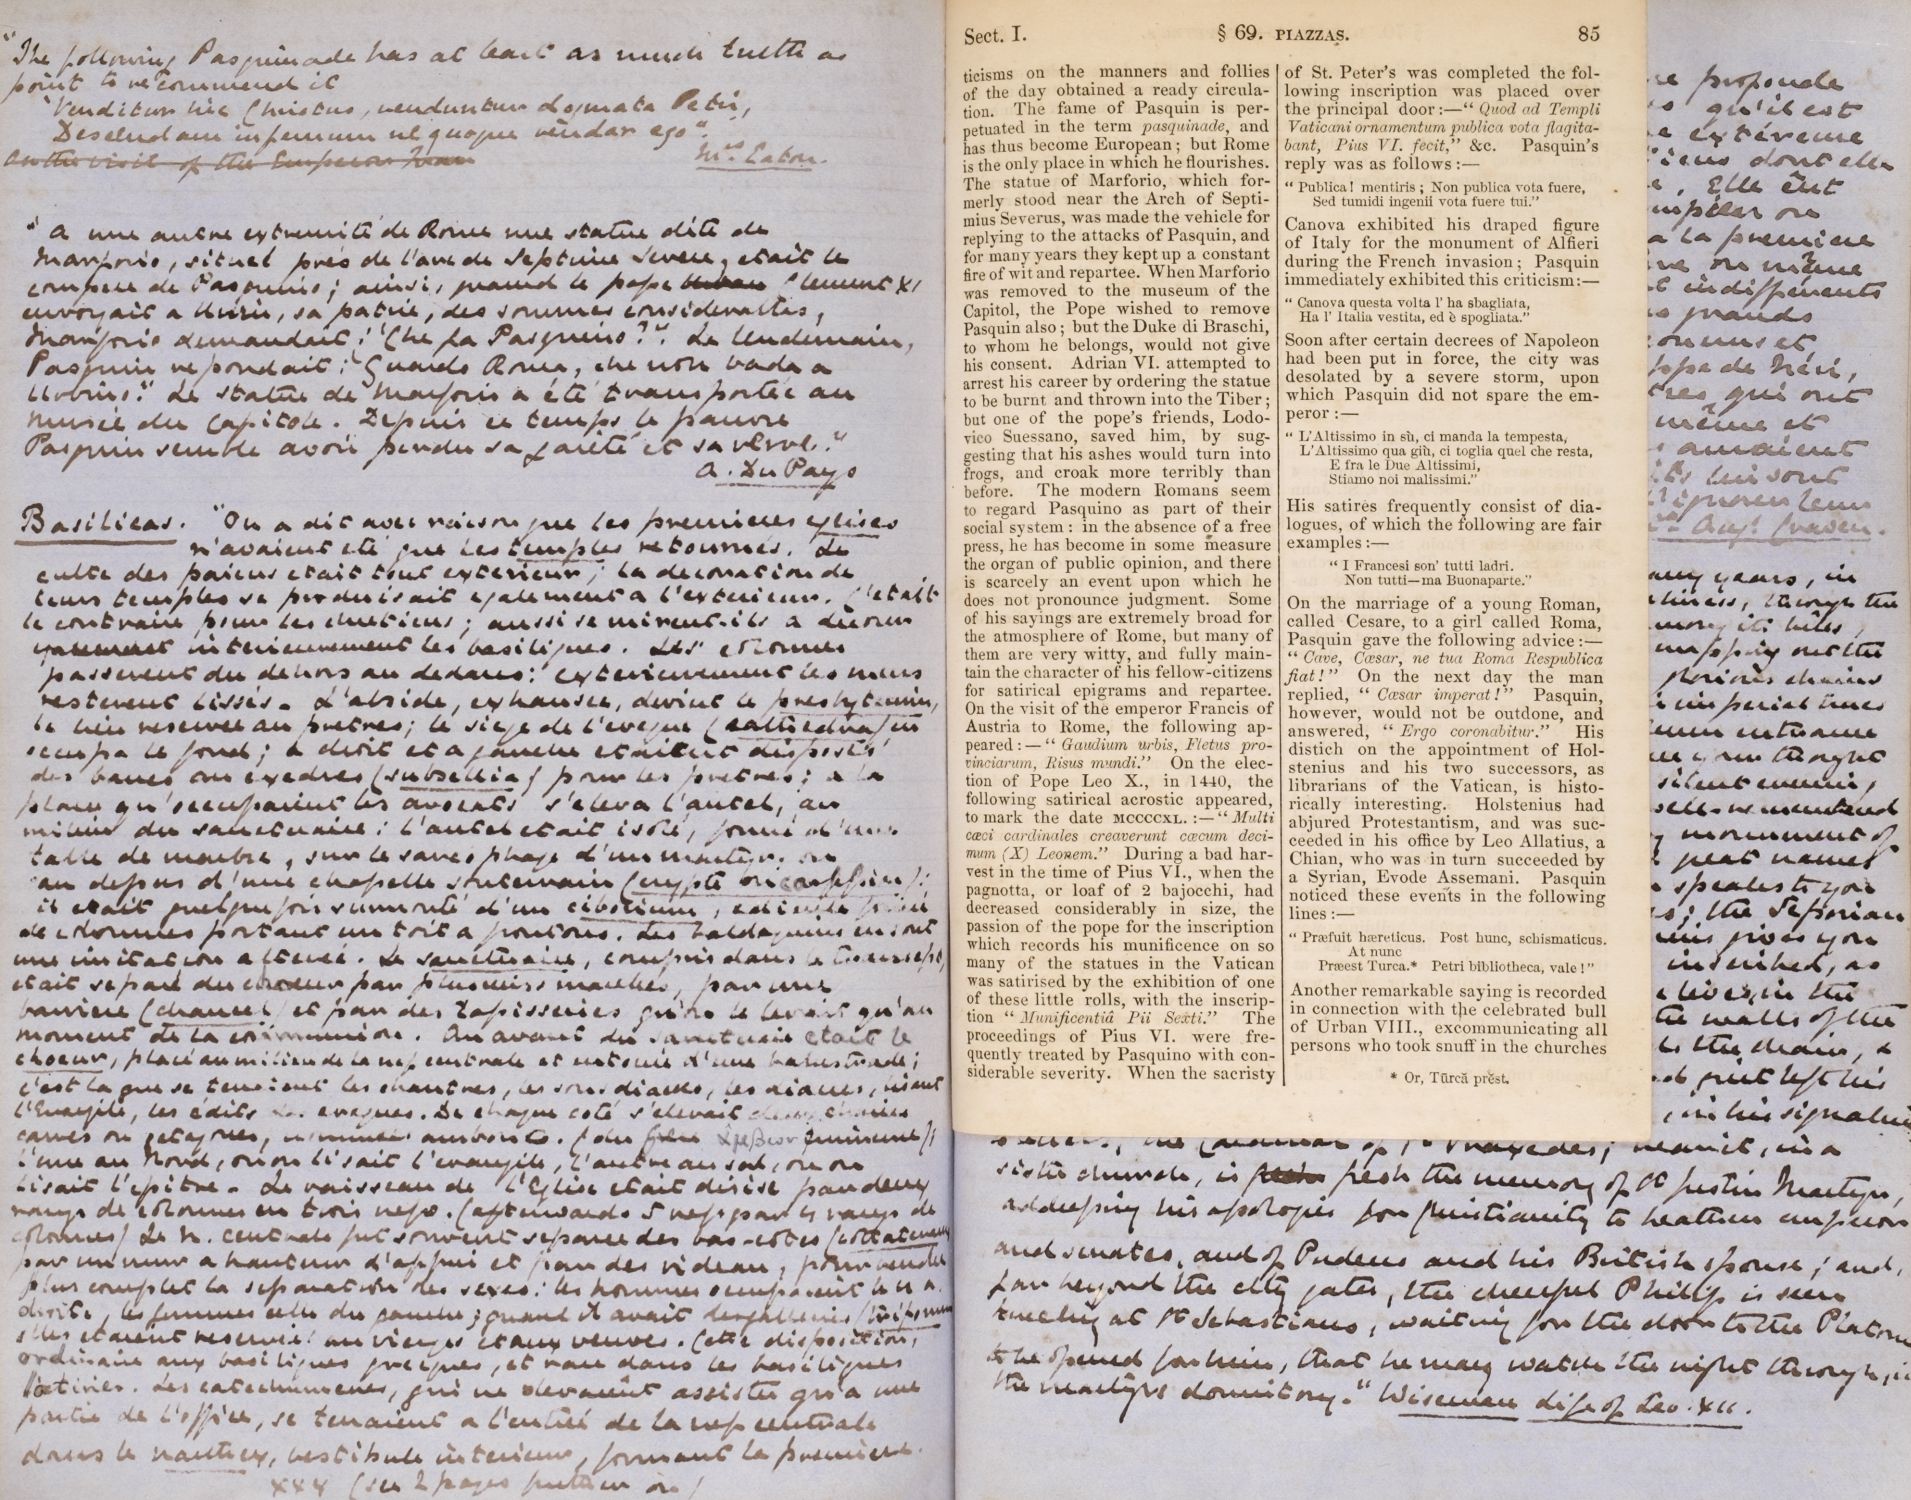 "The following Pasquinade has at least as much truth as
point to recommend it
"Venditur hic Christus, venduntur dogmata Petri,
Descendam infernum ne quoque vendar ego".
On the visit of the Emperor
Mrs Eaton.
"A une autre extremité de Rome une statue dite de
Marforio, situel près de l'arc de Septime Severe, etait le
compere de Pasquino; ainsi, quand le pape Clement XI
envoyait a Urbin, sa patrie, des sommes considerables,
Marforio demandait: "Che fa Pasquino?". Le lendemain,
Pasquin repondait: "Guardo Roma, che non vada a
Urbino." La statue de Marforio a été transportée au
musée du Capitole. Depuis ce temps le pauvre
Pasquin semble avoir perdu sa gaieté et sa verve."
A. Du Pays
Basilicas. "On a dit avec raison que les premieres eglises
n'avaient eté que les temples retournés. Le
culte des paiens etait tout exterieur; la decoration de
leurs temples se produisait egalement a l'exterieur. C'etait
le contraire pour les chretiens; aussi se mirent-ils a decorer
interieurement les basiliques. Les colonnes
passerent du dehors au dedans; exterieurement les murs
resterent lissés. L'abside, exhaussee, devint le presbyterium,
le lieu reservee au pretres; le siege de l'eveque (cathedra) en
occupa le fond; a droit et a gauche etaient disposés
des bancs ou exedres (subsellia) pour les pretres; a la
place qu'occupaient les avocats s'eleva l'autel, au
milieu du sanctuaire; l'autel etait isolé, formé d'une
table de marbre, sur le sarcophage d'un martyr ou
au dessus d'une chapelle souterrain (crypte ou confession);
il etait quelquefois surmonté d'un ciborium, edicule
de colonnes portant un toit a frontons. Les baldaquins en sont
une imitation alterée. Le sanctuaire, compris dans le transept,
etait separé du choeur par plusieurs marches, par une
barriere (chancel) et par des tapisseries qu'on ne levait qu'au
moment de la communion. En avant du sanctuaire etait le
choeur, placé au milieu de la nef centrale et entourée d'une balustrade;
c'est la que se tenaient les chantres, les sous diacres, les diacres, lisant
l'Evangile, les édits des eveques. De chaque coté s'elevait deux chaires
carrées ou octogones, nommées ambons. (du grec eminence);
l'une au Nord, ou on lisait l'evangile, l'autre au sud, ou on
lisait l'epitre. Le vaisseau de l'Eglise etait divisé par deux
rangs de colonnes en trois nefs. (afterwards 5 nefs par 4 rangs de
colonnes) La N. centrale fut souvent separee des bas-cotés (collateraux)
par un mur a hauteur d'appui et par des rideau, pour rendre
plus complet la separation des sexes: les hommes occupaient la n. a
droite, les femmes celle du gauche; quand il avait des galleries (triforium
elles etaient reservés au vierges et aux veuves. Cette disposition,
ordinaire aux basiliques grecques, est rare dans les basiliques
latines. Les catechumenes, qui ne devaient assister qu'a une
partie de l'office, se tenaient a l'entrée de la nef centrale
dans le narthex, vestibule interieur, formant la premiere
xxx (see 2 pages further on)
Sect. I. § 69. PIAZZAS. 85
ticisms on the manners and follies
of the day obtained a ready circula-
tion. The fame of Pasquin is per-
petuated in the term pasquinade, and
has thus become European; but Rome
is the only place in which he flourishes.
The statue of Marforio, which for-
merly stood near the Arch of Septi-
mius Severus, was made the vehicle for
replying to the attacks of Pasquin, and
for many years they kept up a constant
fire of wit and repartee. When Marforio
was removed to the museum of the
Capitol, the Pope wished to remove
Pasquin also; but the Duke di Braschi,
to whom he belongs, would not give
his consent. Adrian VI. attempted to
arrest his career by ordering the statue
to be burnt and thrown into the Tiber;
but one of the pope's friends, Lodo-
vico Suessano, saved him, by sug-
gesting that his ashes would turn into
frogs, and croak more terribly than
before. The modern Romans seem
to regard Pasquino as part of their
social system: in the absence of a free
press, he has become in some measure
the organ of public opinion, and there
is scarcely an event upon which he
does not pronounce judgment. Some
of his sayings are extremely broad for
the atmosphere of Rome, but many of
them are very witty, and fully main-
tain the character of his fellow-citizens
for satirical epigrams and repartee.
On the visit of the emperor Francis of
Austria to Rome, the following ap-
peared:—"Gaudium urbis, Fletus pro-
vinciarum, Risus mundi." On the elec-
tion of Pope Leo X., in 1440, the
following satirical acrostic appeared,
to mark the date MCCCCXL.:—"Multi
cæci cardinales creaverunt cæcum deci-
mum (X) Leonem." During a bad har-
vest in the time of Pius VI., when the
pagnotta, or loaf of 2 bajocchi, had
decreased considerably in size, the
passion of the pope for the inscription
which records his munificence on so
many of the statues in the Vatican
was satirised by the exhibition of one
of these little rolls, with the inscrip-
tion "Munificentiâ Pii Sexti." The
proceedings of Pius VI. were fre-
quently treated by Pasquino with con-
siderable severity. When the sacristy
of St. Peter's was completed the fol-
lowing inscription was placed over
the principal door:—"Quod ad Templi
Vaticani ornamentum publica vota flagita-
bant, Pius VI. fecit," &c. Pasquin's
reply was as follows:—
"Publica! mentiris; Non publica vota fuere,
Sed tumidi ingenii vota fuere tui."
Canova exhibited his draped figure
of Italy for the monument of Alfieri
during the French invasion; Pasquin
immediately exhibited this criticism:—
"Canova questa volta l' ha sbagliata,
Ha l' Italia vestita, ed è spogliata."
Soon after certain decrees of Napoleon
had been put in force, the city was
desolated by a severe storm, upon
which Pasquin did not spare the em-
peror:—
"L'Altissimo in sù, ci manda la tempesta,
L'Altissimo qua giù, ci toglia quel che resta,
E fra le Due Altissimi,
Stiamo noi malissimi."
His satires frequently consist of dia-
logues, of which the following are fair
examples:—
"I Francesi son' tutti ladri.
Non tutti—ma Buonaparte."
On the marriage of a young Roman,
called Cesare, to a girl called Roma,
Pasquin gave the following advice:—
"Cave, Cæsar, ne tua Roma Respublica
fiat!" On the next day the man
replied, "Cæsar imperat!" Pasquin,
however, would not be outdone, and
answered, "Ergo coronabitur." His
distich on the appointment of Hol-
stenius and his two successors, as
librarians of the Vatican, is histo-
rically interesting. Holstenius had
abjured Protestantism, and was suc-
ceeded in his office by Leo Allatius, a
Chian, who was in turn succeeded by
a Syrian, Evode Assemani. Pasquin
noticed these events in the following
lines:—
"Præfuit hæreticus. Post hunc, schismaticus.
At nunc
Præest Turca.* Petri bibliotheca, vale!"
Another remarkable saying is recorded
in connection with the celebrated bull
of Urban VIII., excommunicating all
persons who took snuff in the churches
* Or, Tūrcă prĕst.
profonde
qu'il est
extérieure
dont elle
Elle eût
ou
a la premiere
ou même
indifferents
grands
et
de Néri,
qui ont
même et
auraient
lui sont
leur
Augs Craven.
many years, in
through the
among its hills,
mapping out the
glorious
imperial times
entrance
thought
silent
remembered
monument of
great names
speaks to you
; the Seporian
gives you
inscribed, as
lives, in the
the walls of the
the chain, &
left his
, in his signature
the Cardinal of St Praxedes; near it, in a
sister church, is fresh the memory of St Justin Martyr,
addressing his apologies for Christianity to heathen emperors
and senates, and of Pudens and his British spouse; and,
far beyond the city gates, the cheerful Philip is seen
kneeling at St Sebastiano, waiting for the door to the Platonia
to be opened for him, that he may watch the night through, in
the martyrs dormitory." Wiseman Life of Leo. XII.